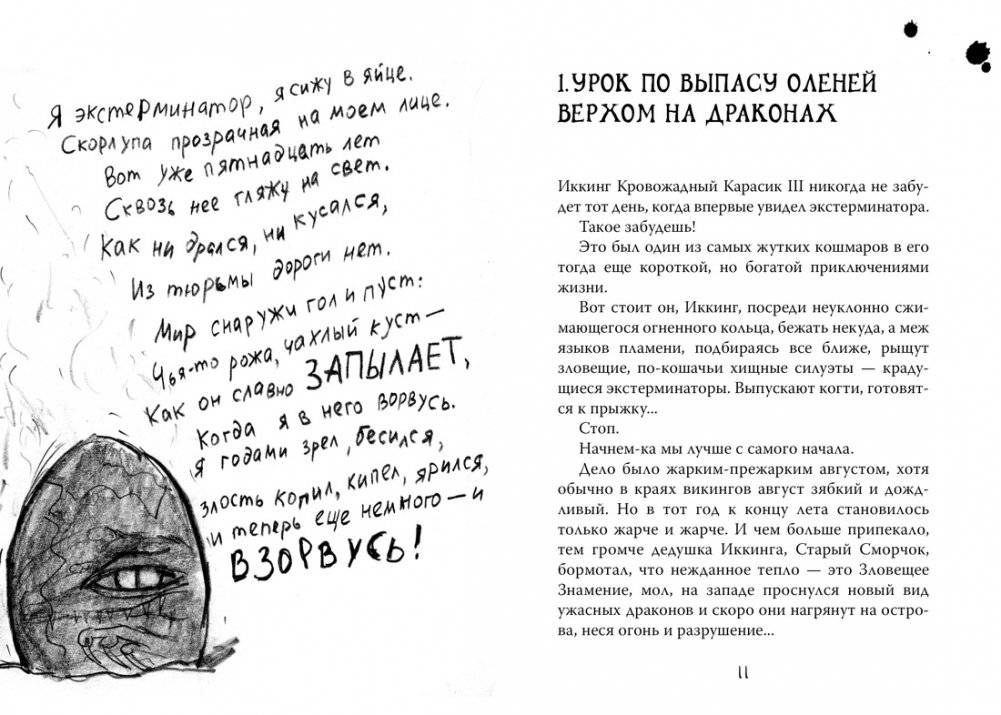 Я экстерминатор, я сижу в яйце.
Скорлупа прозрачная на моем лице.
Вот уже пятнадцать лет
Сквозь нее гляжу на свет.
Как ни дрался, ни кусался,
Из тюрьмы дороги нет.
Мир снаружи гол и пуст:
Чья-то рожа, чахлый куст —
Как он славно ЗАПЫЛАЕТ,
Когда я в него ворвусь.
Я годами зрел, бесился,
злость копил, кипел, ярился,
и теперь еще немного — и
ВЗОРВУСЬ!
1. УРОК ПО ВЫПАСУ ОЛЕНЕЙ
ВЕРХОМ НА ДРАКОНАХ
Иккинг Кровожадный Карасик III никогда не забу-
дет тот день, когда впервые увидел экстерминатора.
Такое забудешь!
Это был один из самых жутких кошмаров в его
тогда еще короткой, но богатой приключениями
жизни.
Вот стоит он, Иккинг, посреди неуклонно сжи-
мающегося огненного кольца, бежать некуда, а меж
языков пламени, подбираясь все ближе, рыщут
зловещие, по-кошачьи хищные силуэты — краду-
щиеся экстерминаторы. Выпускают когти, готовят-
ся к прыжку...
Стоп.
Начнем-ка мы лучше с самого начала.
Дело было жарким-прежарким августом, хотя
обычно в краях викингов август зябкий и дожд-
ливый. Но в тот год к концу лета становилось
только жарче и жарче. И чем больше припекало,
тем громче дедушка Иккинга, Старый Сморчок,
бормотал, что нежданное тепло — это Зловещее
Знамение, мол, на западе проснулся новый вид
ужасных драконов и скоро они нагрянут на остро-
ва, неся огонь и разрушение...
11